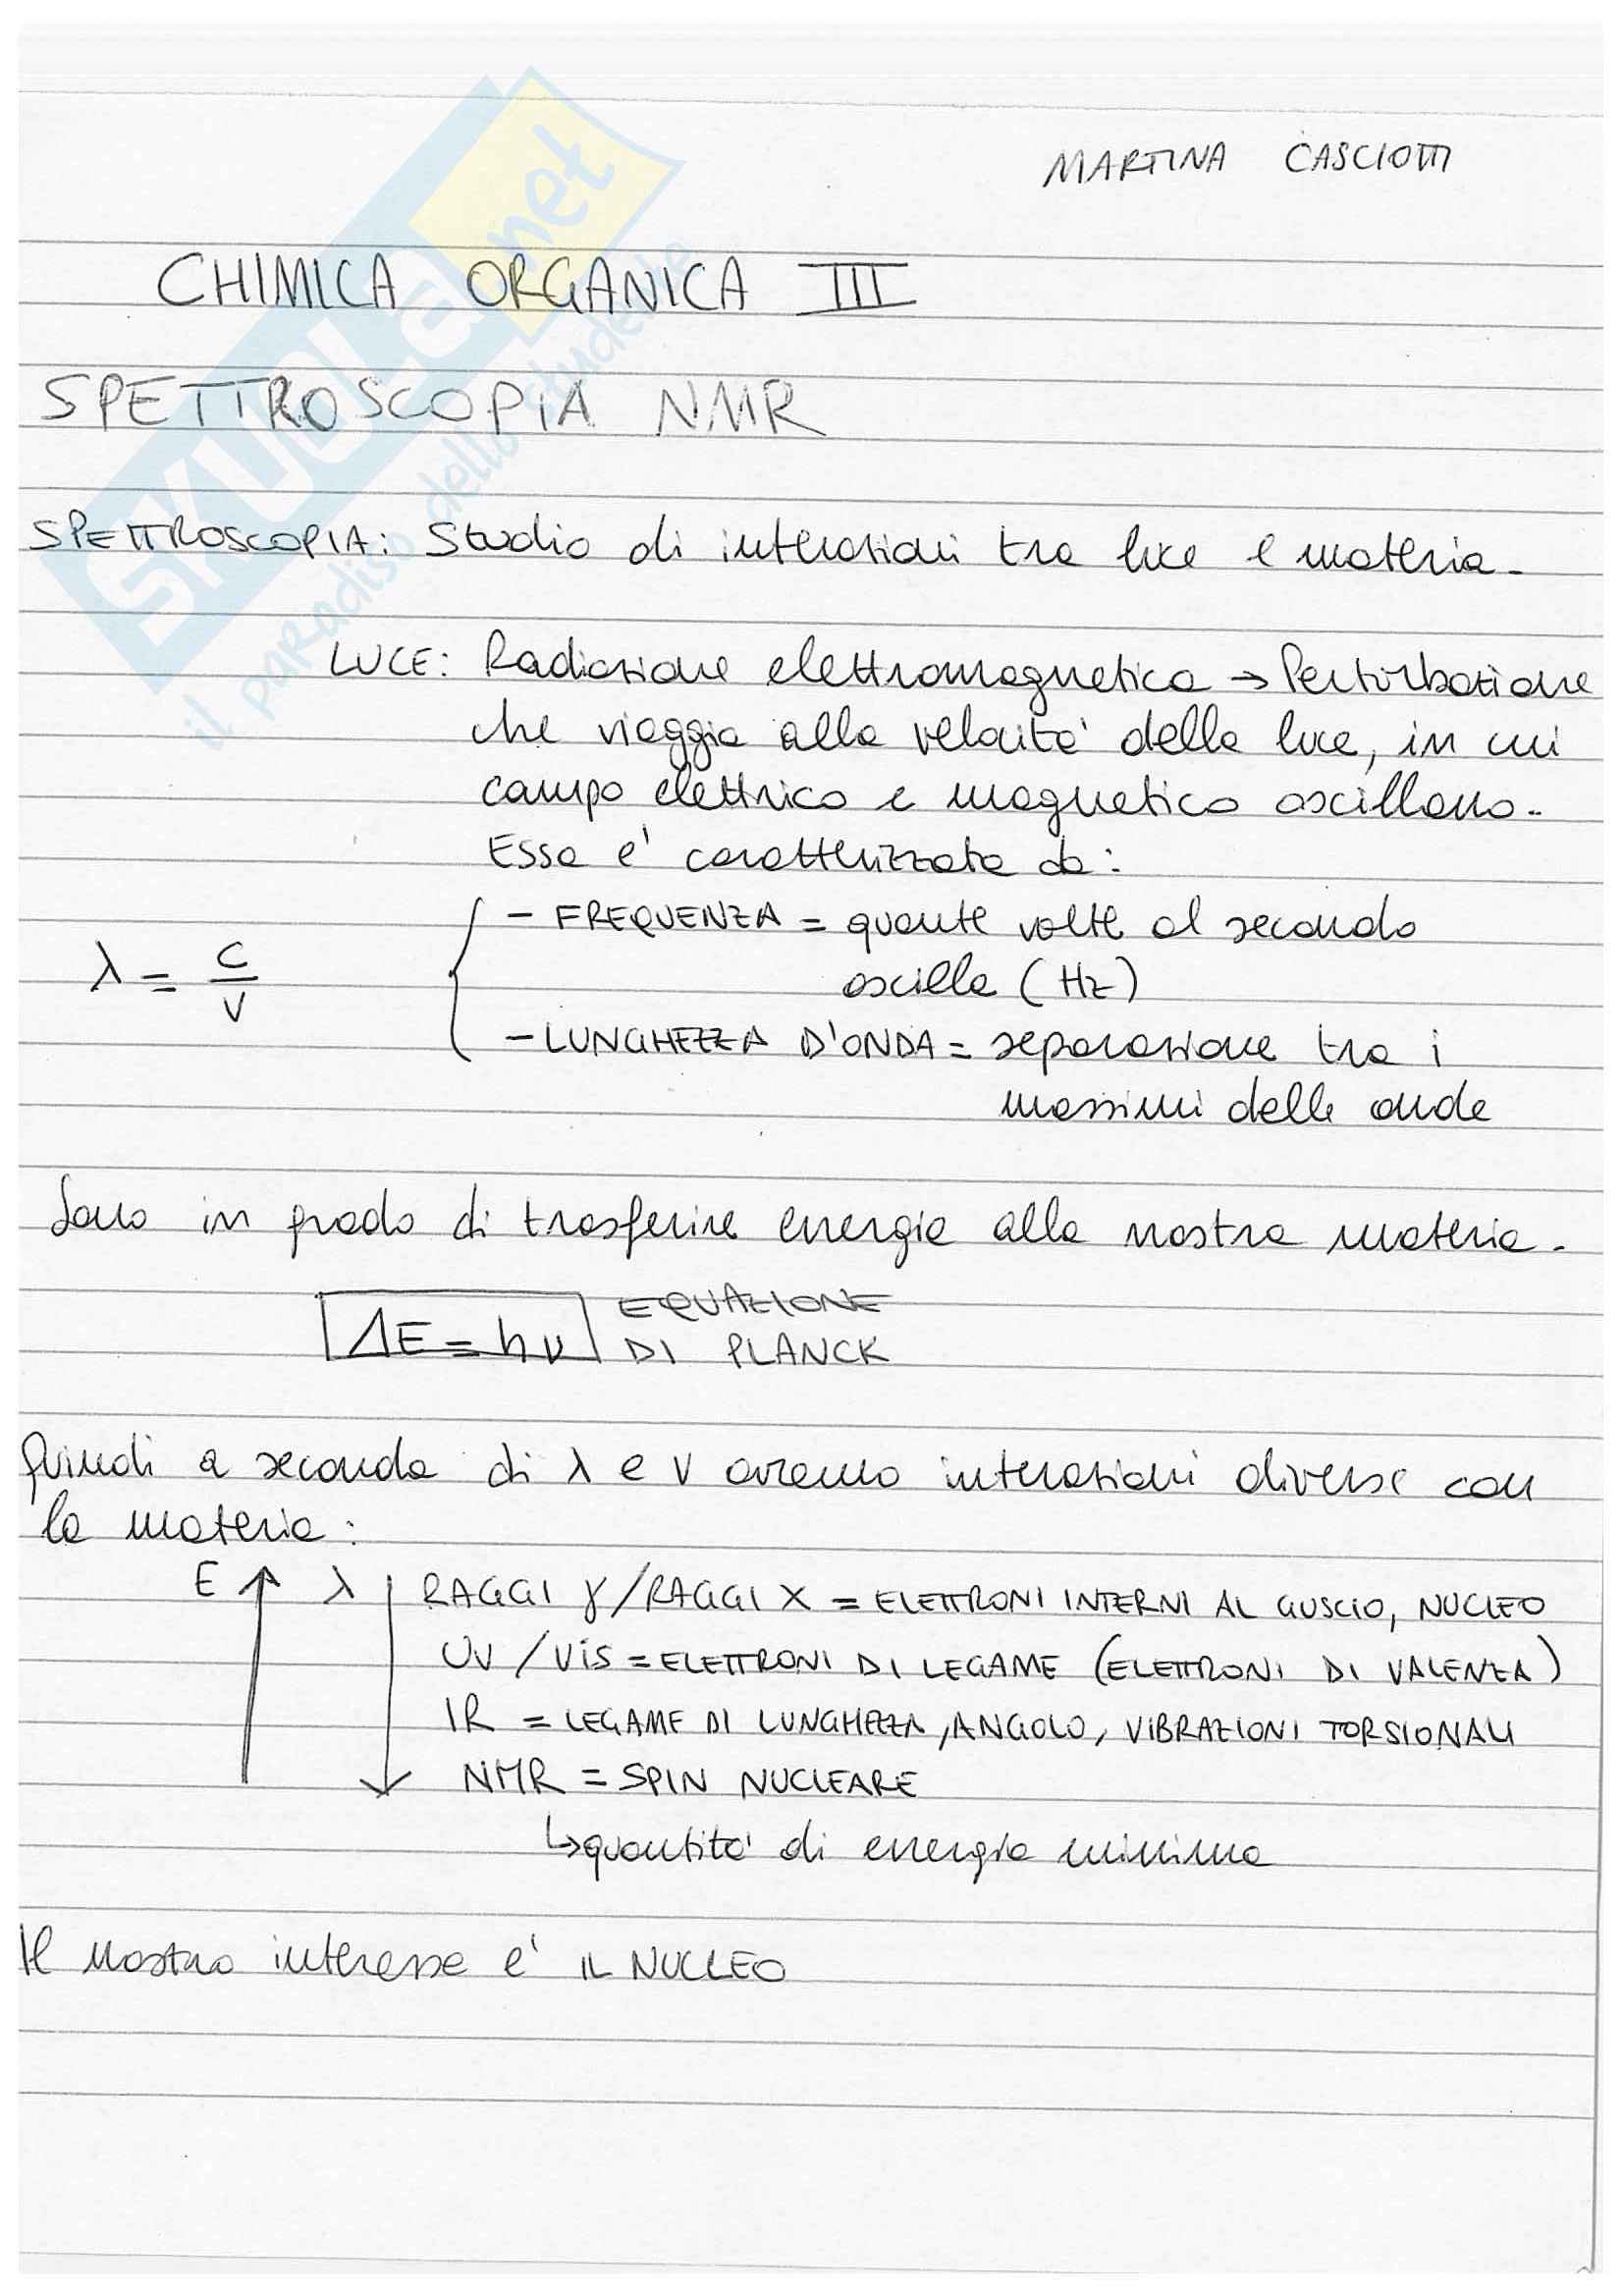 MARTINA CASCIOTTI
SKUOLA.net
il paradiso dello studente
CHIMICA ORGANICA III
SPETTROSCOPIA NMR
SPETTROSCOPIA: Studio di interazioni tra luce e materia.
LUCE: Radiazione elettromagnetica → Perturbazione
che viaggia alla velocità della luce, in cui
campo elettrico e magnetico oscillano.
Essa e' caratterizzata da:
- FREQUENZA = quante volte al secondo
oscilla (Hz)
λ = c/ν
- LUNGHEZZA D'ONDA = separazione tra i
massimi delle onde
Sono in grado di trasferire energia alla nostra materia.
ΔE = hν EQUAZIONE
DI PLANCK
Quindi a seconda di λ e ν avremo interazioni diverse con
la materia:
E ↑ λ ↓ RAGGI γ/RAGGI X = ELETTRONI INTERNI AL GUSCIO, NUCLEO
UV / VIS = ELETTRONI DI LEGAME (ELETTRONI DI VALENZA)
IR = LEGAME DI LUNGHEZZA, ANGOLO, VIBRAZIONI TORSIONALI
NMR = SPIN NUCLEARE
↳ quantita' di energia minima
Il nostro interesse e' IL NUCLEO